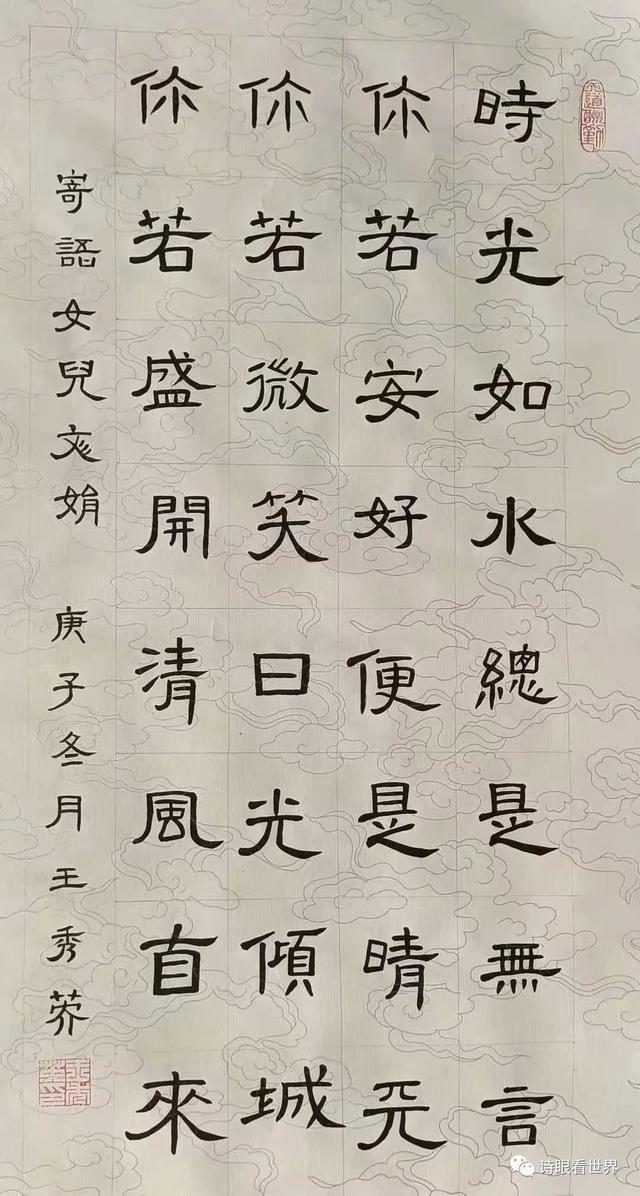 天道酬勤
時光如水總是無言
你若安好便是晴天
你若微笑日光傾城
你若盛開清風自來
寄語女兒娟
庚子冬月王秀
诗眼看世界